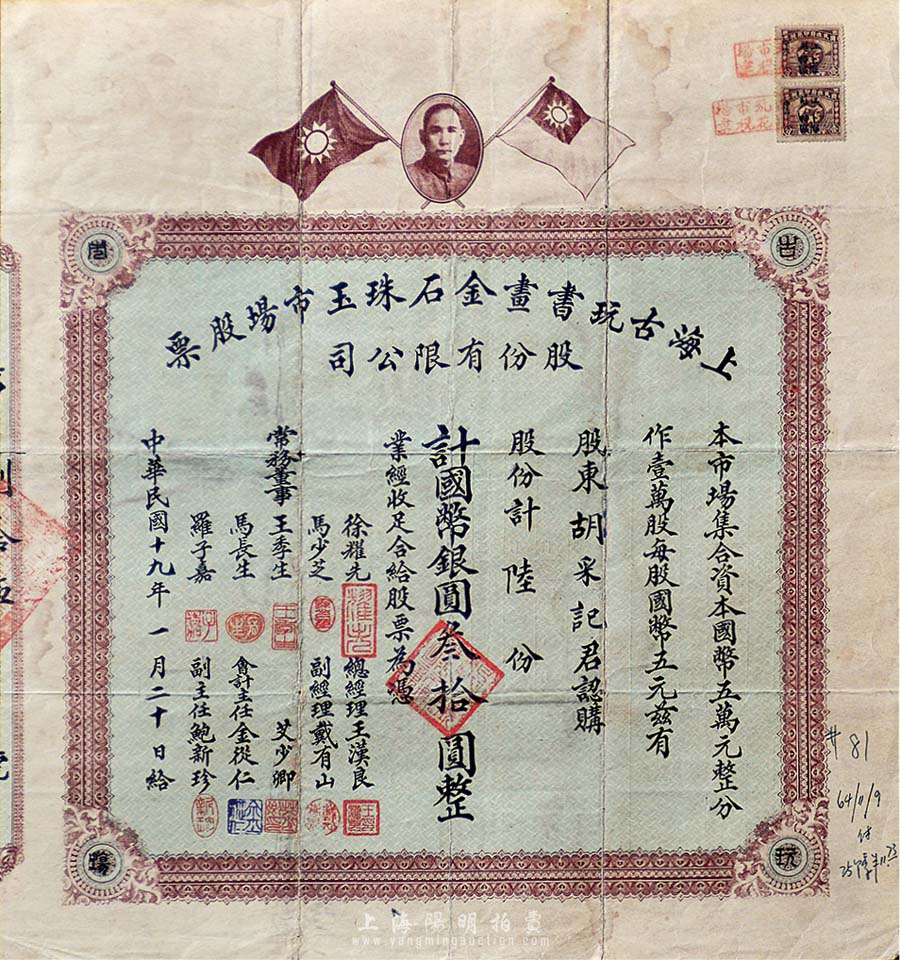 上海古玩書畫金石珠玉市場股票
股份有限公司
本市場集合資本國幣五萬元整分
作壹萬股每股國幣五元茲有
股東胡采記君認購
股份計陸份
計國幣銀圓叁拾圓整
業經收足合給股票為憑
常務董事
徐耀先
馬少芝
王季生
馬長生
羅子嘉
總經理王漢良
副經理戴有山
艾少卿
會計主任金從仁
副主任鮑新珍
中華民國十九年一月二十日給
古
玩
市
場
#81
64/11/9
上海陽明拍賣
www.yangmingauction.com